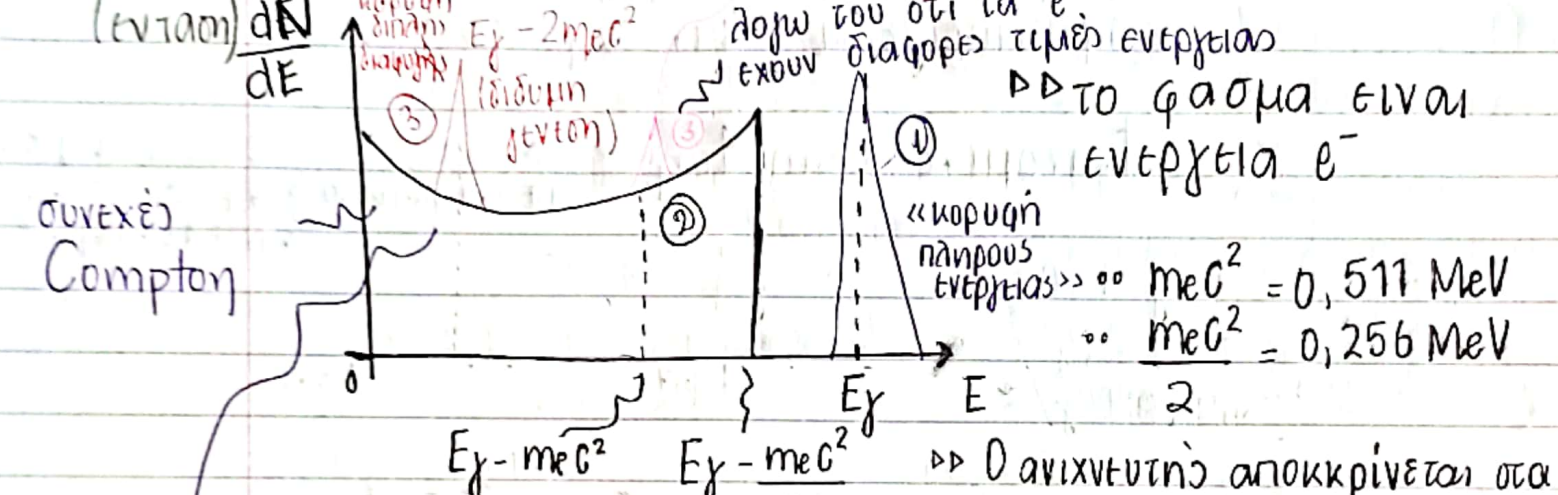 (ένταση) dN
dE
κορυφή
διπλής
διαφυγής
Eγ - 2mec²
(δίδυμη
γένεση)
③
③
λόγω του ότι τα e⁻
έχουν διάφορες τιμές ενέργειας
▷▷ το φάσμα είναι
ενέργεια e⁻
①
②
συνεχές
Compton
«κορυφή
πλήρους
ενέργειας»
∘∘ mec² = 0,511 MeV
∘∘ mec² = 0,256 MeV
2
0
Eγ
E
Eγ - mec²
Eγ - mec²
▷▷ Ο ανιχνευτής αποκκρίνεται στα